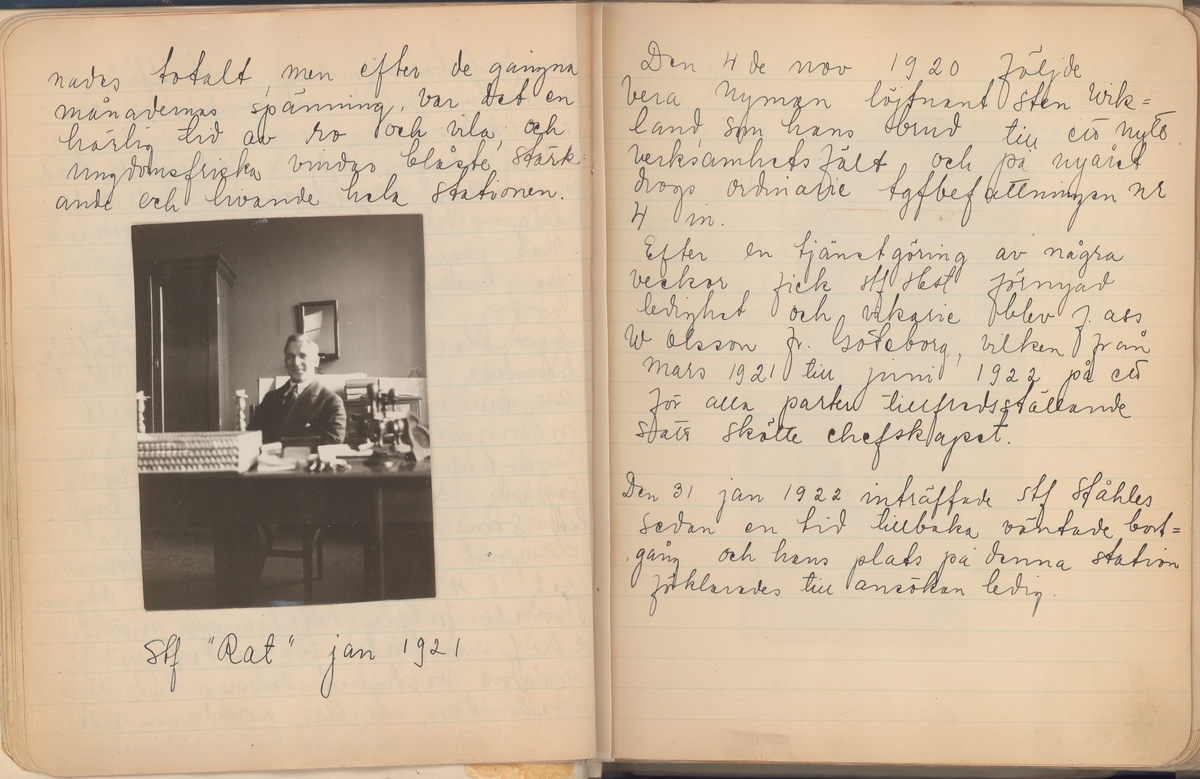 nades totalt, men efter de gångna
månadernas spänning, var det en
härlig tid av ro och vila, och
ungdomsfriska vindar blåste, stärk-
ande och livande hela stationen.
Stf "Rat" jan 1921
Den 4 de nov 1920 följde
Vera Nyman löjtnant Sten Wik=
land, som hans brud till ett nytt
verksamhetsfält och på nyåret
drogs ordinarie tgfbefattningen nr
4 in.
Efter en tjänstgöring av några
veckor fick stf förnyad
ledighet och vikarie blev j. ass
W Olsson fr. Göteborg, vilken från
mars 1921 till juni 1922 på ett
för alla parter tillfredsställande
sätt skötte chefskapet.
Den 31 jan 1922 inträffade stf Ståhles
sedan en tid tillbaka väntade bort=
gång och hans plats på denna station
förklarades till ansökan ledig.